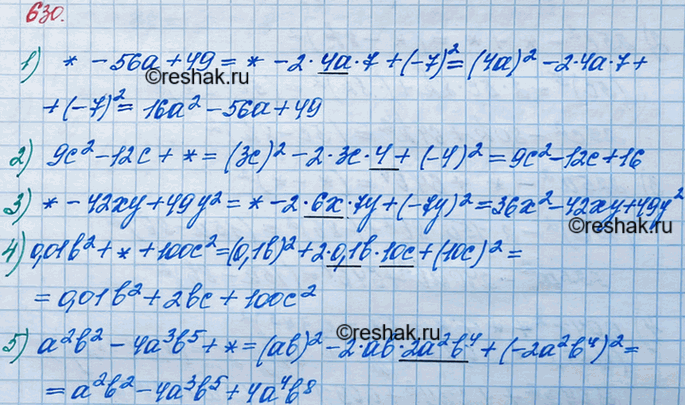 630.
1) * - 56a + 49 = * - 2·4a·7 + (-7)² = (4a)² - 2·4a·7 +
©reshak.ru
+ (-7)² = 16a² - 56a + 49
2) 9c² - 12c + * = (3c)² - 2·3c·4 + (-4)² = 9c² - 12c + 16
3) * - 42xy + 49y² = * - 2·6x·7y + (-7y)² = 36x² - 42xy + 49y²
4) 0,01b² + * + 100c² = (0,1b)² + 2·0,1b·10c + (10c)² =
= 0,01b² + 2bc + 100c²
©reshak.ru
5) a²b² - 4a³b⁵ + * = (ab)² - 2·ab·2a²b⁴ + (-2a²b⁴)² =
= a²b² - 4a³b⁵ + 4a⁴b⁸